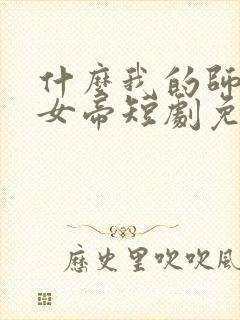 什麼我的師
女帝短劇免
歷史里吹吹風